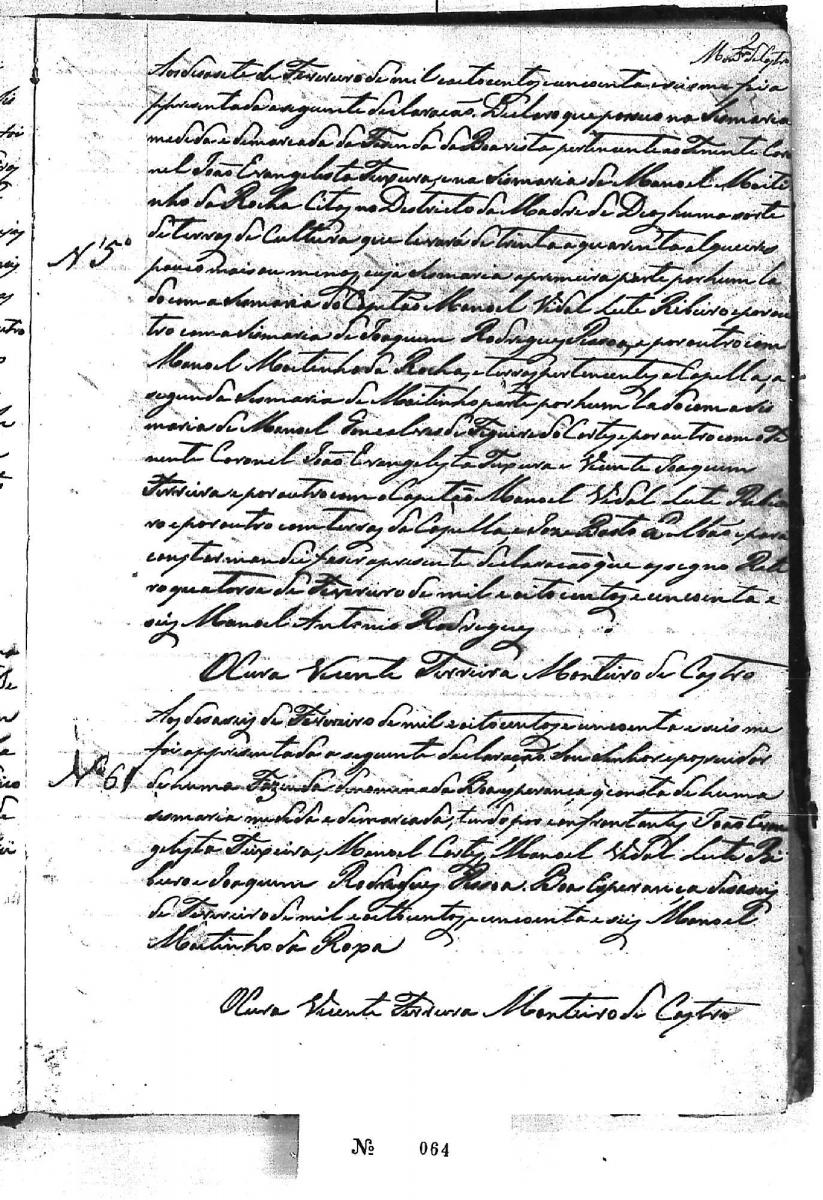 Mont.ro de Castro
Aos desasete de Fevereiro de mil e oitocentos e cincoenta e seis me foi a
ppresentada a seguinte declaração. Declaro que possuo na Sismaria
medida e demarcada da Fazenda da Boavista pertencente ao Tenente Coro
nel João Evangelista Teixeira, e na Sismaria de Manoel Moiti
nho da Rocha Citas no Destricto da Madre de Deos huma sorte
de terras de Cultura que levará de trinta a quarenta alqueires
N 5º
pouco mais ou menos, cuja Sismaria a primeira parte por hum la
do com a Sismaria do Capitão Manoel Vidal Leite Ribeiro e por ou
tro com a Sismaria de Joaquim Rodrigues Pessoa, e por outro com
Manoel Moitinho da Rocha, e terras pertencentes a Capella, a
segunda Sismaria de Moitinho parte por hum lado com a Sis
maria de Manoel Goncalves de Figueiredo Cortes e por outro com o Te
nente Coronel João Evangelista Teixeira e Vicente Joaquim
Ferreira e por outro com o Capitão Manoel Vidal Leite Ribei
ro e por outro com terras da Capella, e Joze Basto e para
constar mandei faser a presente declaração que assegno
quatorse de Fevereiro de mil e oitocentos e cincoenta e
seis Manoel Antonio Rodrigues
O Cura Vicente Ferreira Monteiro de Castro
Aos desaseis de Fevereiro de mil e oitocentos e cincoenta e seis me
foi appresentada a seguinte declaração. Sou Senhor e possuidor
Nº 6
de huma Fazenda denominada Boa esperança q consta de huma
sismaria medida e demarcada, tendo por confrontantes João Evan
gelista Teixeira, Manoel Cortes, Manoel Vidal Leite Ri
beiro e Joaquim Rodrigues Pessoa. Boa Esperança desaseis
de Fevereiro de mil e oitocentos e cincoenta e seis Manoel
Moitinho da Roxa
O Cura Vicente Ferreira Monteiro de Castro
Nº 064